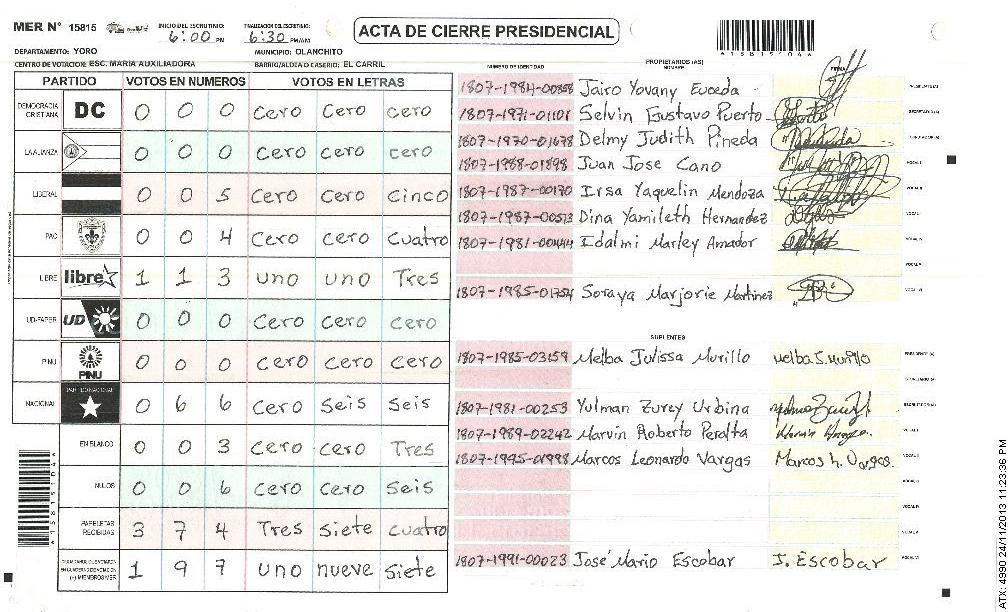 MER N° 15815
INICIO DEL ESCRUTINIO: 6:00 PM
FINALIZACION DEL ESCRUTINIO: 6:30 PM/AM
ACTA DE CIERRE PRESIDENCIAL
A15815104A
DEPARTAMENTO: YORO
MUNICIPIO: OLANCHITO
CENTRO DE VOTACION: ESC. MARIA AUXILIADORA
BARRIO/ALDEA O CASERIO: EL CARRIL
PARTIDO VOTOS EN NUMEROS VOTOS EN LETRAS
DEMOCRACIA CRISTIANA DC 0 0 0 Cero Cero cero
LA ALIANZA 0 0 0 Cero Cero cero
LIBERAL 0 0 5 Cero Cero Cinco
PAC 0 0 4 Cero cero Cuatro
LIBRE libre 1 1 3 uno uno Tres
UD-FAPER UD 0 0 0 Cero cero cero
PINU PINU 0 0 0 Cero Cero Cero
NACIONAL PARTIDO NACIONAL 0 6 6 Cero Seis Seis
EN BLANCO 0 0 3 Cero cero Tres
NULOS 0 0 6 Cero Cero Seis
PAPELETAS RECIBIDAS 3 7 4 Tres siete cuatro
(+) MIEMBROS MER 1 9 7 uno nueve siete
NUMERO DE IDENTIDAD
PROPIETARIOS (AS)
NOMBRE
FIRMA
1807-1984-00858 Jairo Yovany Euceda PRESIDENTE(A)
1807-1971-01101 Selvin Gustavo Puerto SECRETARIO(A)
1807-1970-01678 Delmy Judith Pineda
1807-1988-01898 Juan Jose Cano VOCAL I
1807-1987-00170 Irsa Yaquelin Mendoza VOCAL II
1807-1987-00513 Dina Yamileth Hernandez
1807-1981-00444 Idalmi Marley Amador
VOCAL V
1807-1985-01754 Soraya Marjorie Martinez VOCAL VI
SUPLENTES
1807-1985-03159 Melba Julissa Murillo Melba J. Murillo PRESIDENTE (A)
SECRETARIO (A)
1807-1981-00253 Yulman Zurey Urbina ESCRUTADOR(A)
1807-1989-02242 Marvin Roberto Peralta
1807-1995-01998 Marcos Leonardo Vargas Marcos L. Vargas
1807-1991-00023 José Mario Escobar J. Escobar VOCAL VI
ATX: 4990 24/11/2013 11:23:36 PM